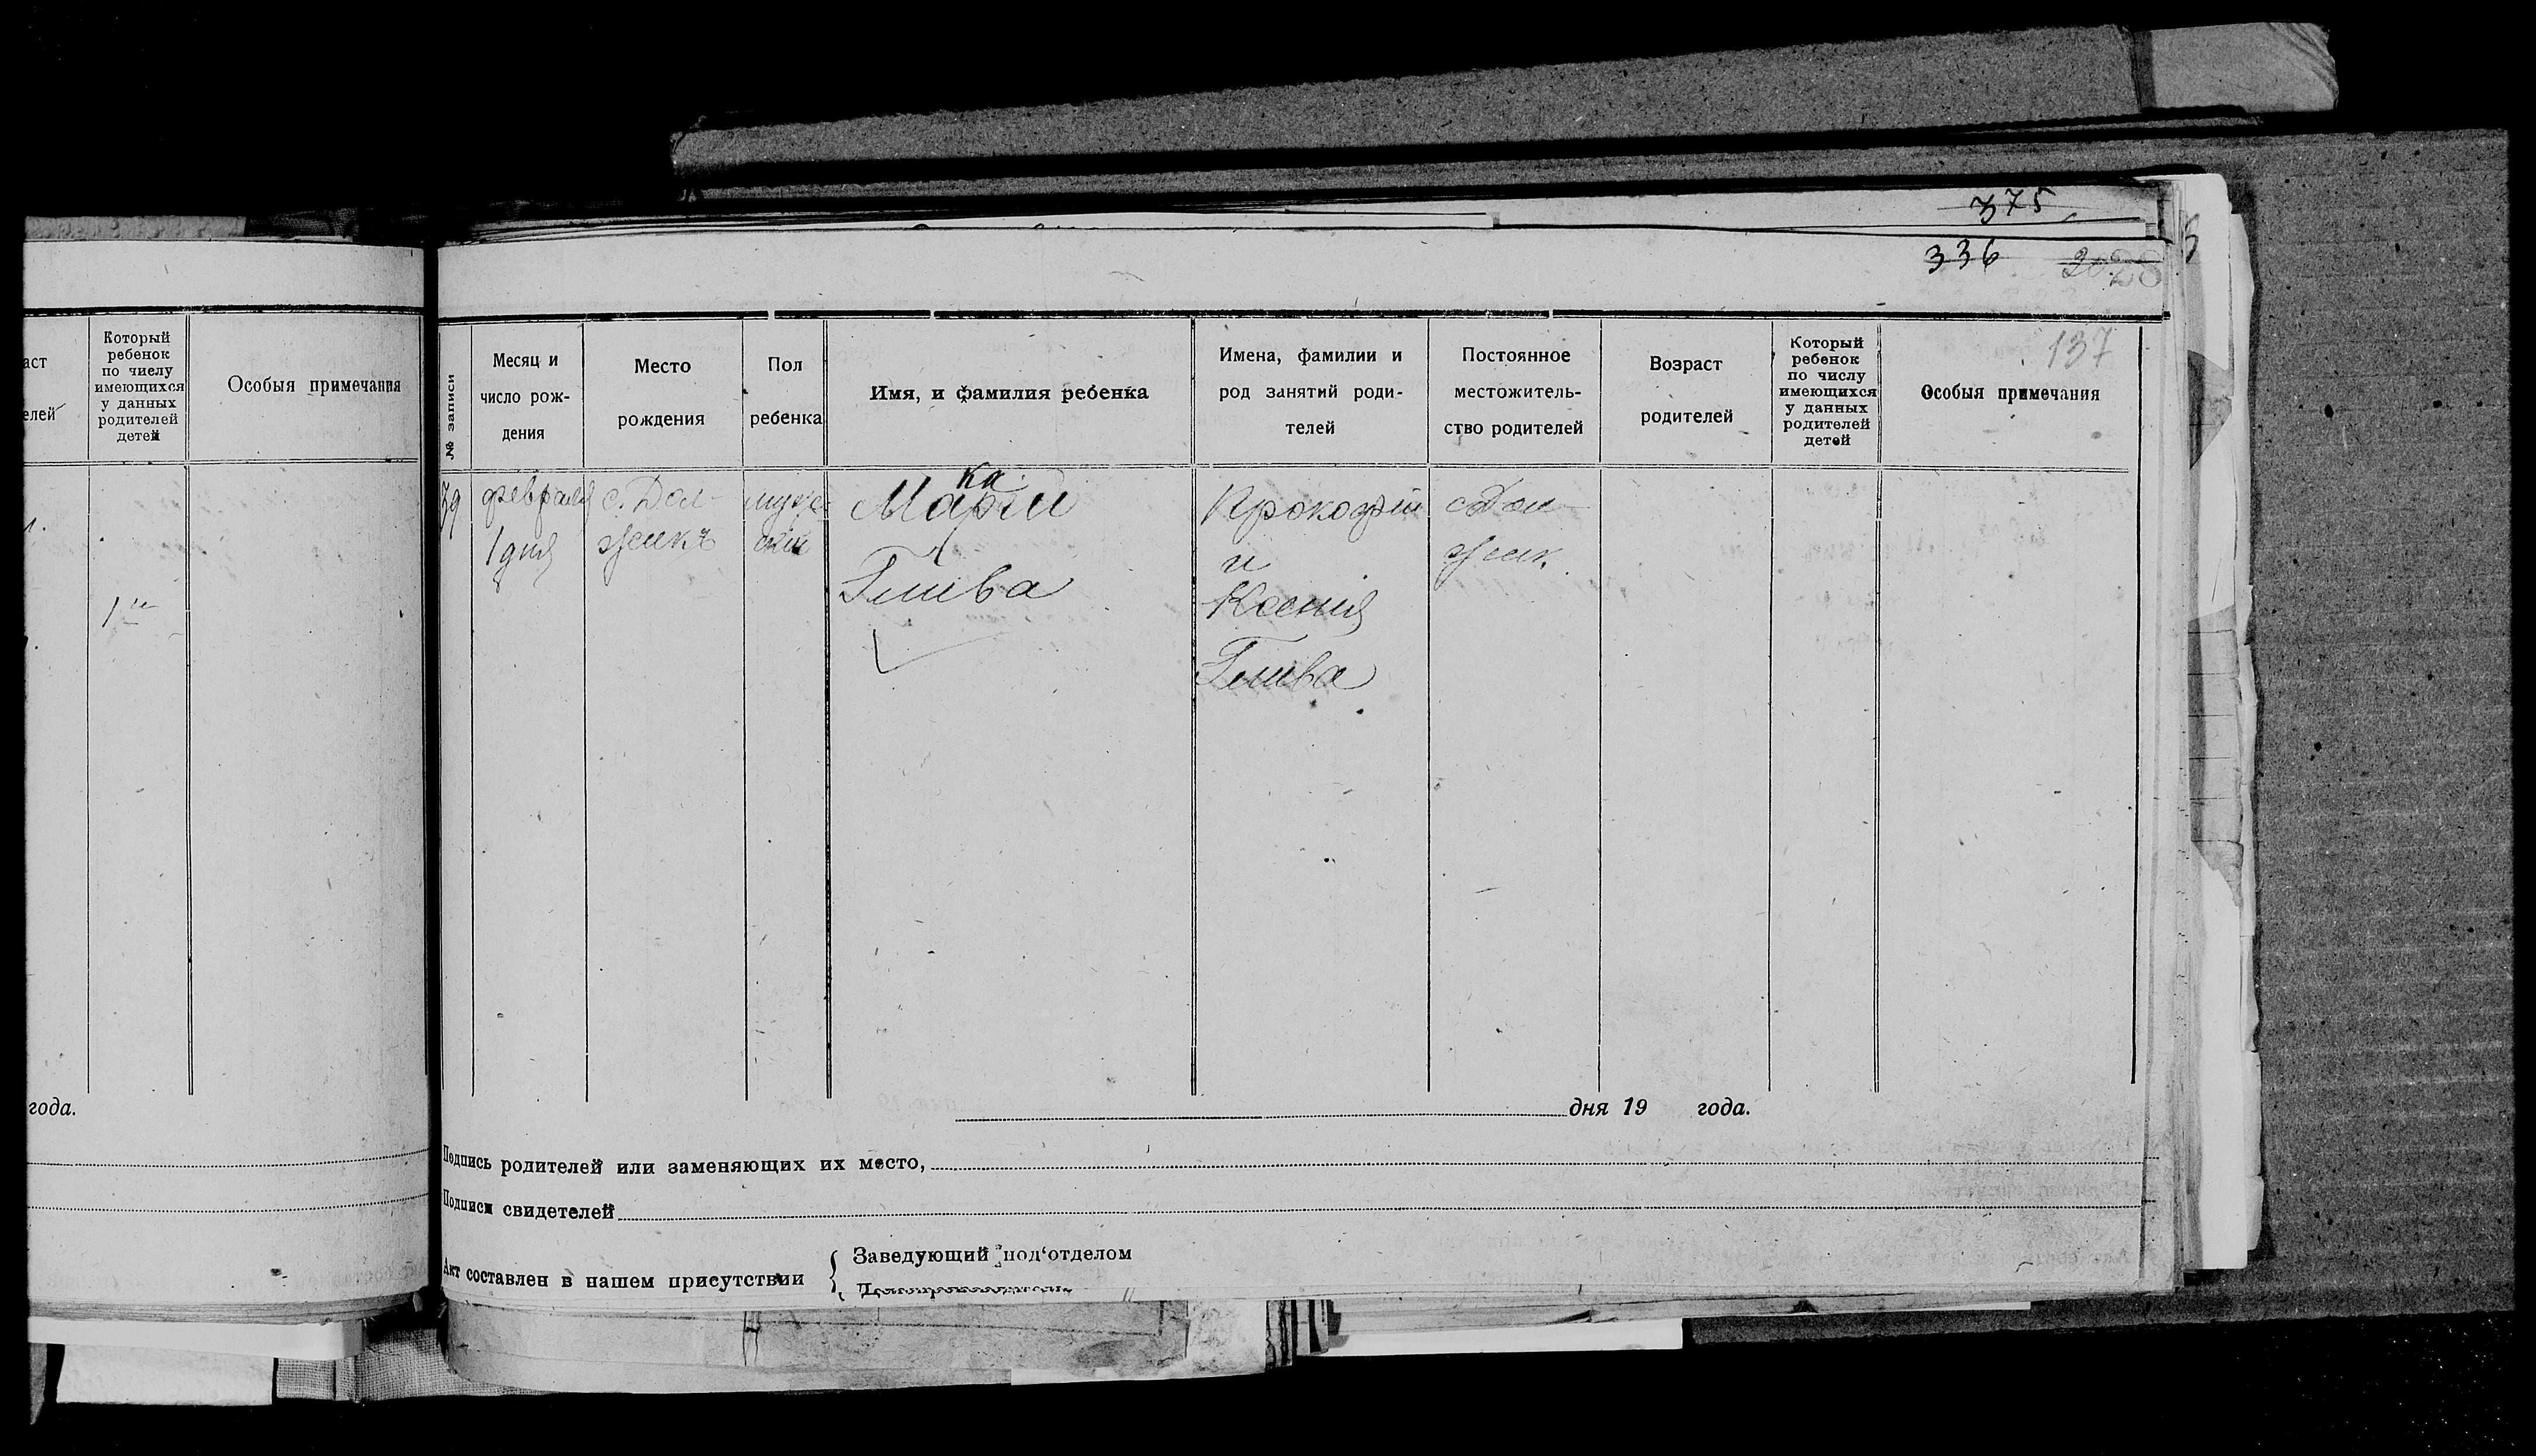 375
336
аст
елей
Который
ребенок
по числу
имеющихся
у данных
родителей
детей
Особыя примечания
1й
года.
№ записи
Месяц и
число рож-
дения
Место
рождения
Пол
ребенка
Имя, и фамилия ребенка
Имена, фамилии и
род занятий роди-
телей
Постоянное
местожитель-
ство родителей
Возраст
родителей
Который
ребенок
по числу
имеющихся
у данных
родителей
детей
137
Особыя примечания
79
февраля
1 дня
с. Дол-
жикъ
муж
ской
ка
Марки
Глива
Прокофiй
и
Ксенiя
Глива
с Дол
жик.
дня 19 года.
Подпись родителей или заменяющих их место,
Подписи свидетелей
Акт составлен в нашем присутствии
Заведующий под‘отделом